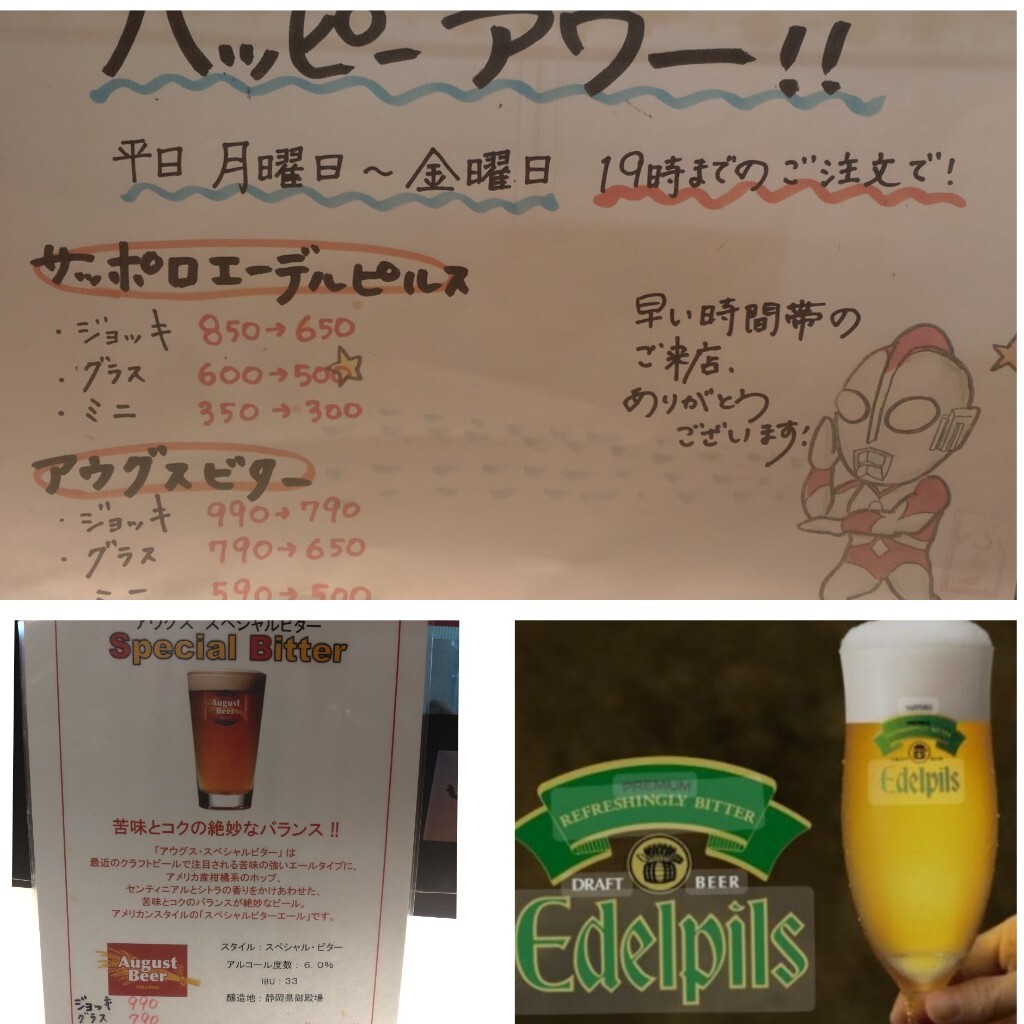 ハッピーアワー!!
平日 月曜日～金曜日 19時までのご注文で!
サッポロエーデルピルス
・ジョッキ 850→650
・グラス 600→500
・ミニ 350→300
早い時間帯の
ご来店、
ありがとう
ございます!
アウグスビター
・ジョッキ 990→790
・グラス 790→650
・ミニ 590→500
アウグス スペシャルビター
Special Bitter
August
Beer
苦味とコクの絶妙なバランス !!
「アウグス・スペシャルビター」は
最近のクラフトビールで注目される苦味の強いエールタイプに、
アメリカ産柑橘系のホップ、
センティニアルとシトラの香りをかけあわせた、
苦味とコクのバランスが絶妙なビール。
アメリカンスタイルの「スペシャルビターエール」です。
August
Beer
スタイル：スペシャル・ビター
アルコール度数：6.0%
IBU：33
醸造地：静岡県御殿場
ジョッキ 990
グラス 790
PREMIUM
REFRESHINGLY BITTER
DRAFT BEER
Edelpils
SAPPORO
PREMIUM
REFRESHINGLY BITTER
Edelpils